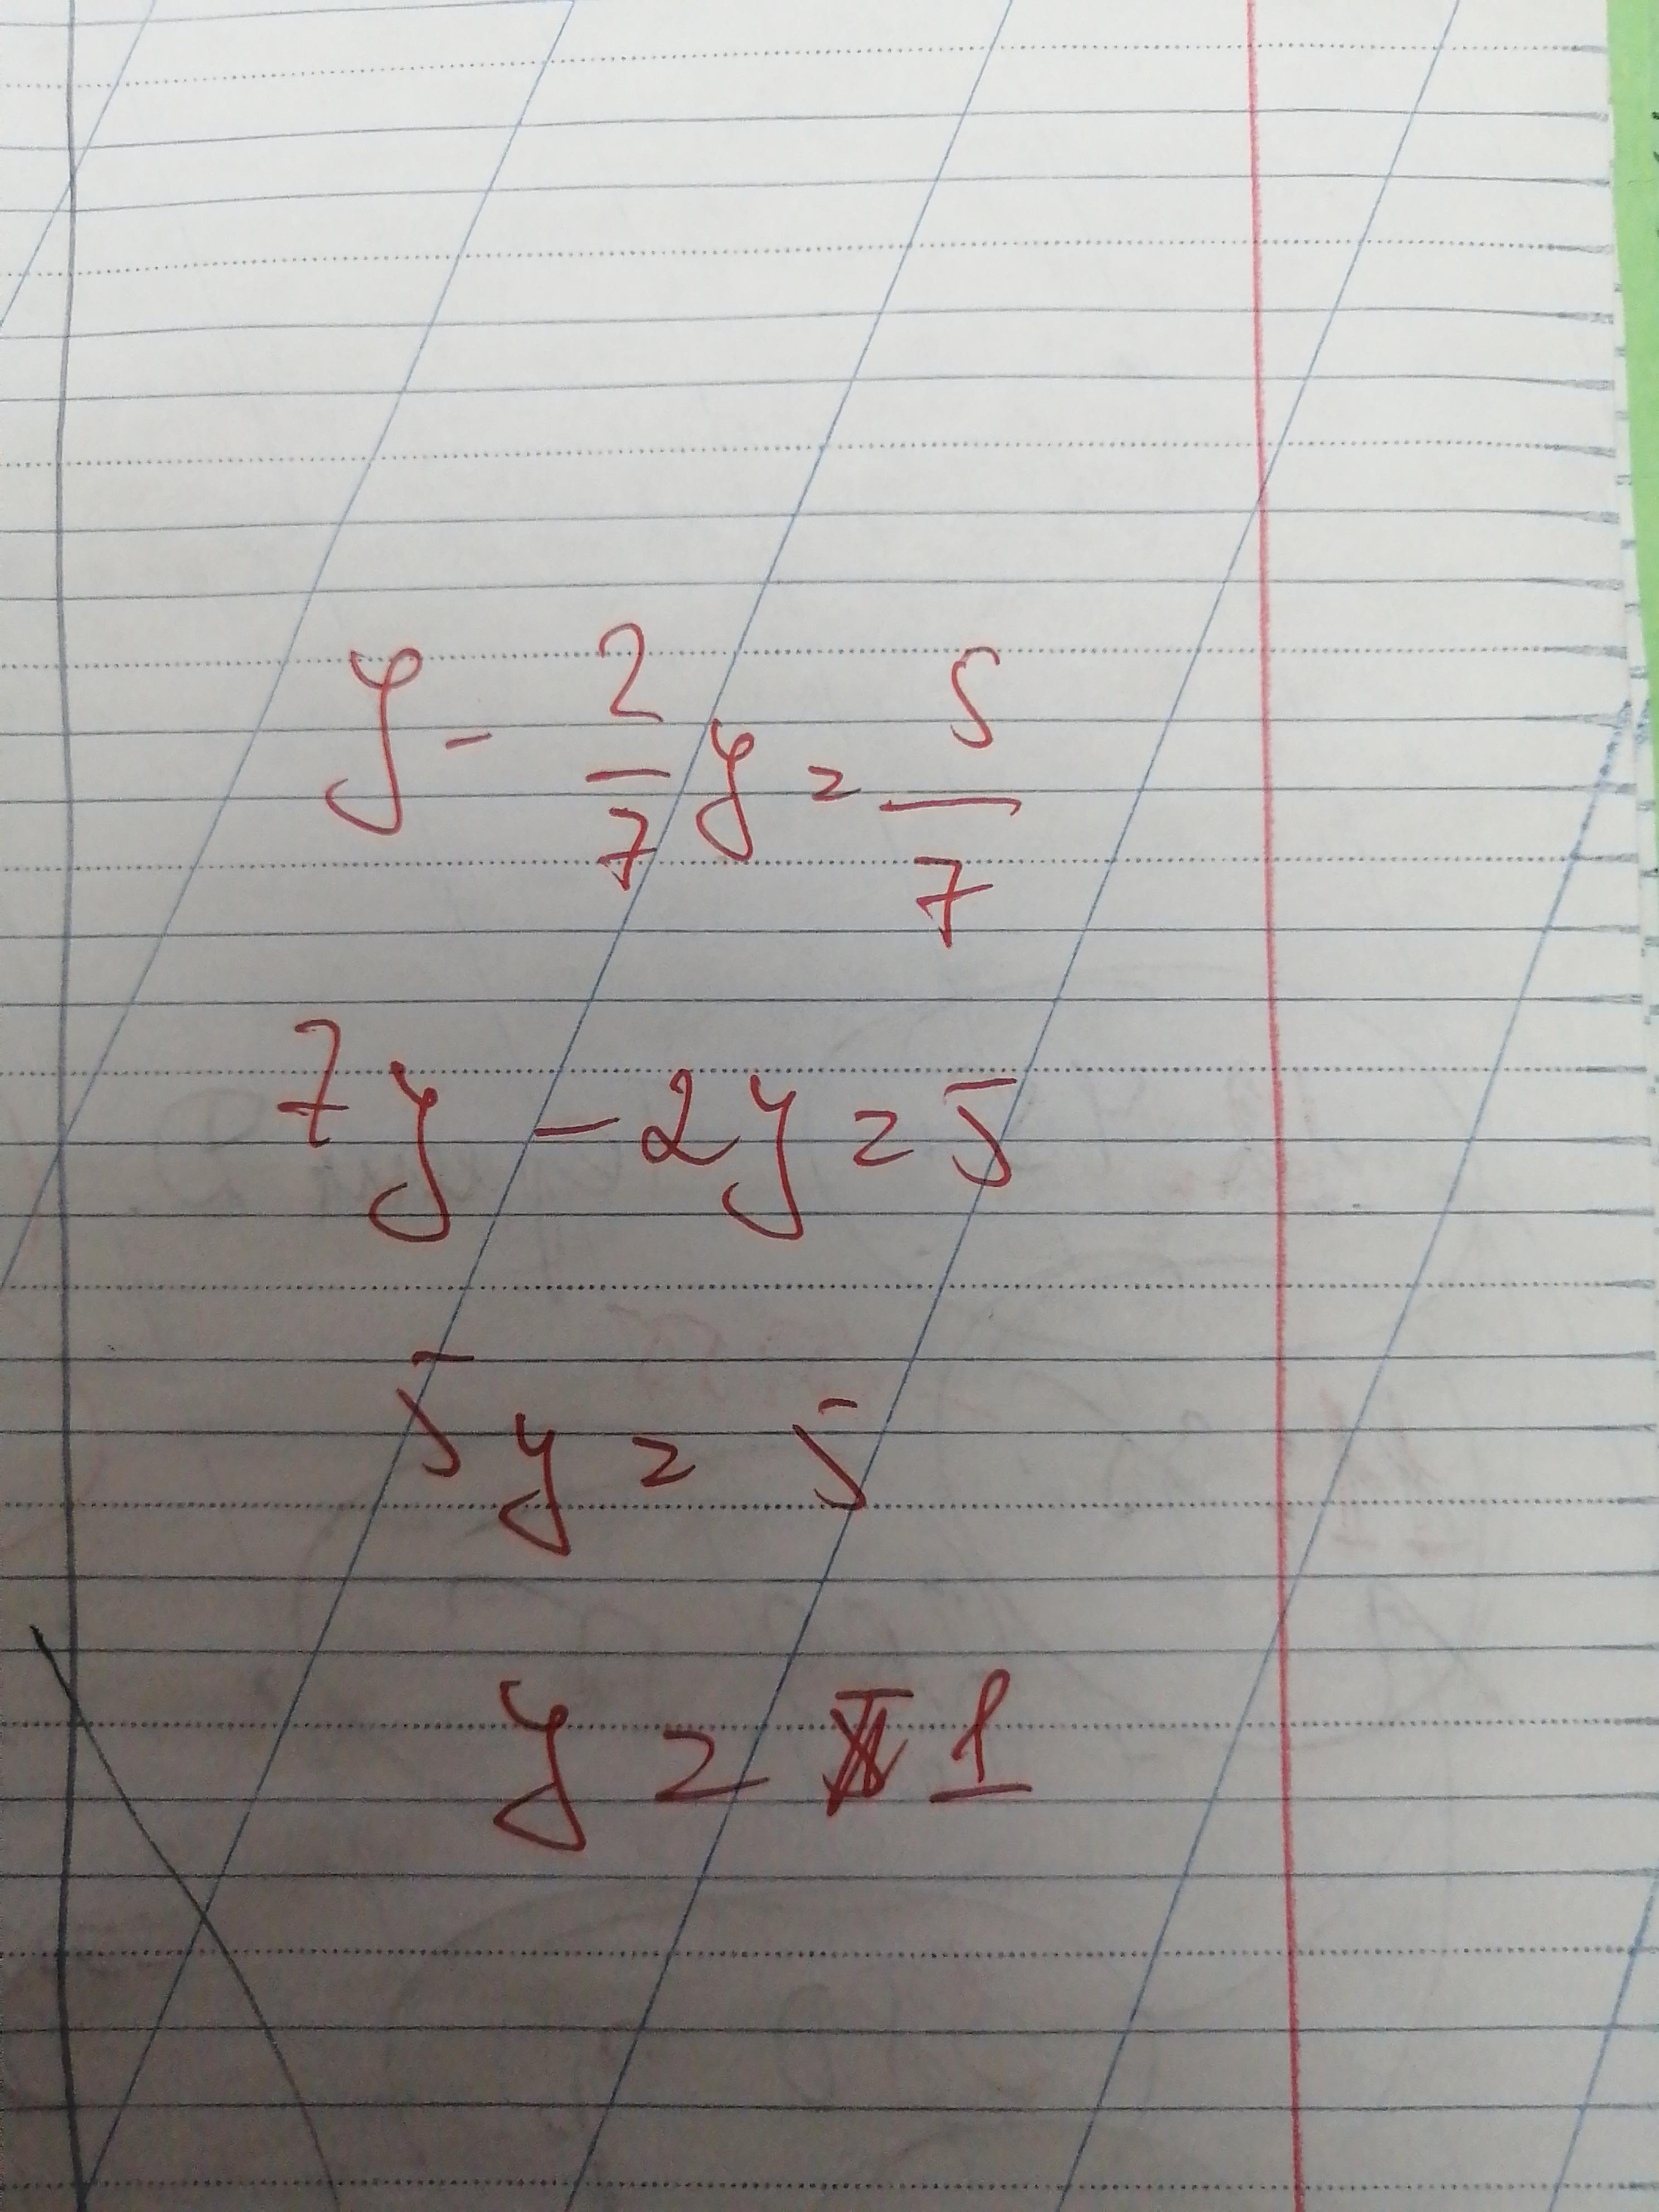 y - 2/7 y = 5/7
7y - 2y = 5
5y = 5
y = 1